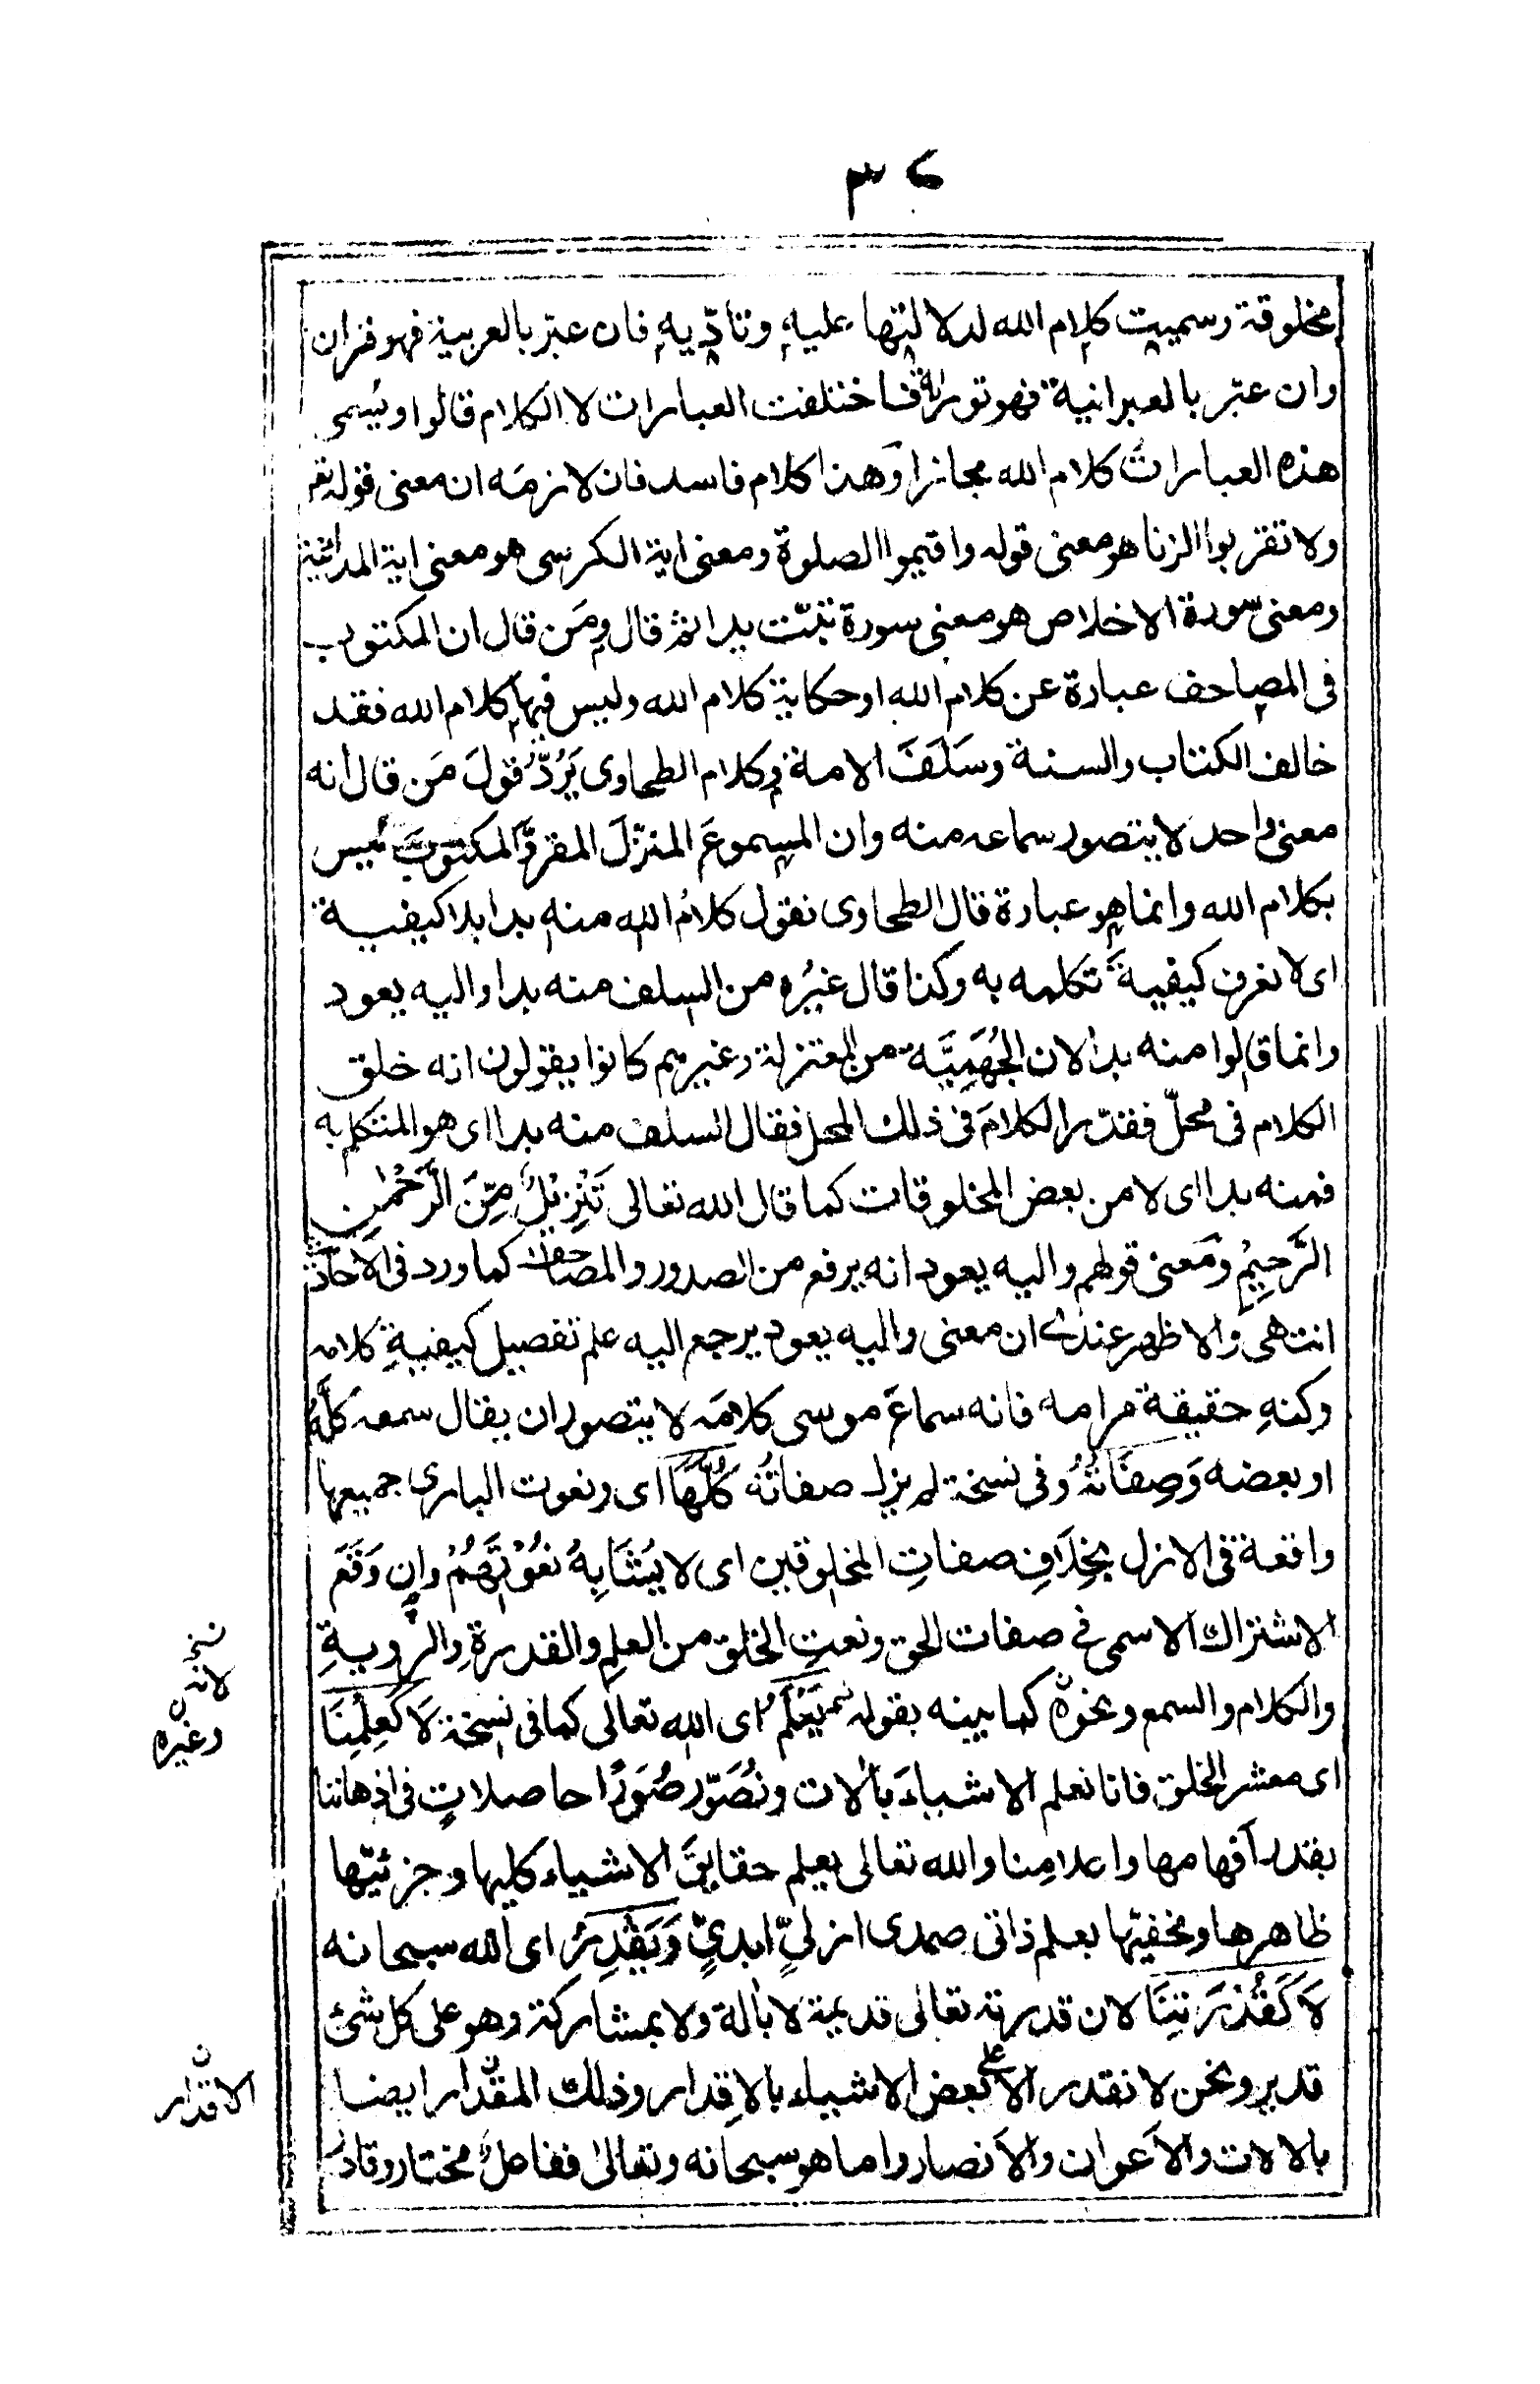 ٣٦
مخلوقة وسميت كلام الله لدلالتها عليه وتأدّيه فان عبّر بالعربية فهو قران
وان عبّر بالعبرانية فهو توراة فاختلفت العبارات لا الكلام قالوا ويسمى
هذه العبارات كلام الله مجازا وهذا كلام فاسد فان لازمَه ان معنى قوله تع
ولا تقربوا الزنا هو معنى قوله واقيموا الصلوة ومعنى اية الكرسى هو معنى اية المداينة
ومعنى سورة الاخلاص هو معنى سورة تبّت يدا ثم قال ومَن قال ان المكتوب
فى المصاحف عبارة عن كلام الله او حكاية كلام الله وليس فيها كلام الله فقد
خالف الكتاب والسنة وسَلَفَ الامة وكلام الطحاوى يَرُدُّ قولَ مَن قال انه
معنى واحد لا يتصور سماعه منه وان المسموعَ المنزّلَ المقروَّ المكتوبَ ليس
بكلام الله وانما هو عبارة قال الطحاوى نقول كلامُ الله منه بدا بلا كيفية
اى لا نعرف كيفيةَ تكلمه به وكذا قال غيرُه من السلف منه بدا واليه يعود
وانما قالوا منه بدا لان الجُهَمِيَّة من المعتزلة وغيرهم كانوا يقولون انه خلق
الكلام فى محلّ فقدّر الكلامَ فى ذلك المحل فقال السلف منه بدا اى هو المتكلم به
فمنه بدا اى لا من بعض المخلوقات كما قال الله تعالى تَنْزِيْلٌ مِّنَ الرَّحْمٰنِ
الرَّحِيمِ ومعنى قولهم واليه يعود انه يرفع من الصدور والمصاحف كما ورد فى الاحاديث
انتهى والاظهر عندى ان معنى واليه يعود يرجع اليه علم تفصيل كيفيةِ كلامه
وكنهِ حقيقة مرامه فانه سماعَ موسى كلامَه لا يتصور ان يقال سمعه كلَّهُ
او بعضه وَصِفَاتُهُ وفى نسخة لم يزل صفاتُه كُلُّهَا اى ونعوت البارى جميعها
واقعة فى الازل بِخِلَافِ صفاتِ المخلوقين اى لا يَتَشَابِهُ نعُوْتَهُمْ وان وَقَعَ
الاشتراك الاسمى في صفات الحق ونعتِ الخلق من العلمِ والقدرةِ والرويةِ
والكلام والسمع ونحوه كما بينه بقوله يَعْلَمُ اى الله تعالى كما فى نسخة لَا كَعِلْمِنَا
اى معشر الخلق فانا نعلم الاشياءَ بآلات ونُصَوّر صُوَرًا حاصلاتٍ فى اذهاننا
بقدر آفهامها واعلامِنا والله تعالى يعلم حقايقَ الاشياء كليها وجزئيّها
ظاهرها ومخفيّها بعلم ذاتى صمدى ازلىٍّ ابدىٍّ وَيَقْدِرُ اى الله سبحانه
لَا كَقُدْرَتِنَا لان قدرته تعالى قديمة لا بآلة ولا بمشاركة وهو على كل شئ
قدير ونحن لا نقدر الا على بعض الاشياء بالاقدار وذلك المقدار ايضا
بالالات والاَعوان والاَنصار واما هو سبحانه وتعالىٰ ففاعلٌ مختار وقادرٌ
نسخ
لانه
ن
وغيره
ن
الاقتدار